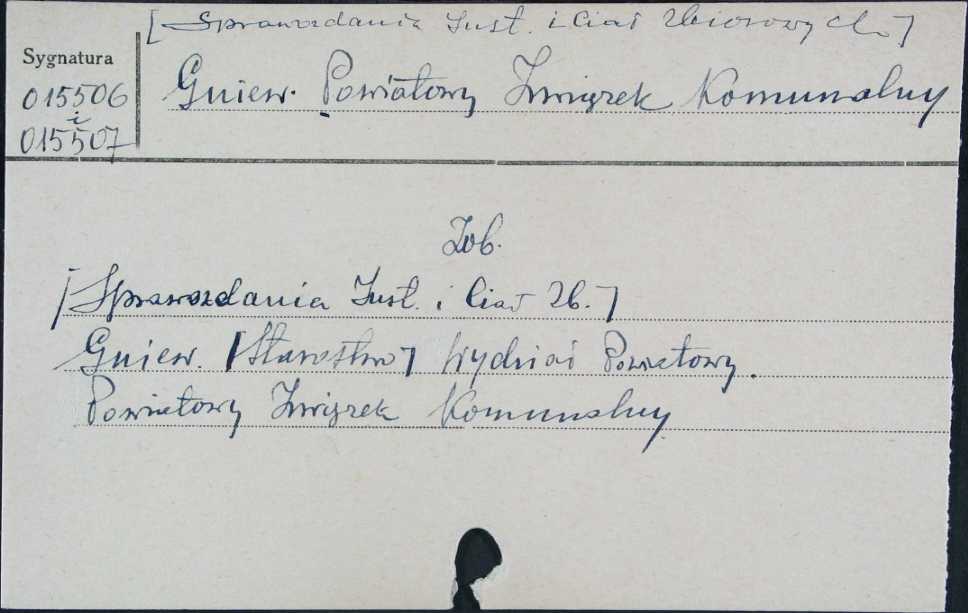 [Sprawozdania Inst. i Ciał Zbiorowych]
Sygnatura
015506
i
015507
Gniew. Powiatowy Związek Komunalny
Zob.
[Sprawozdania Inst. i Ciał Zb.]
Gniew. [Starostwo] Wydział Powiatowy.
Powiatowy Związek Komunalny